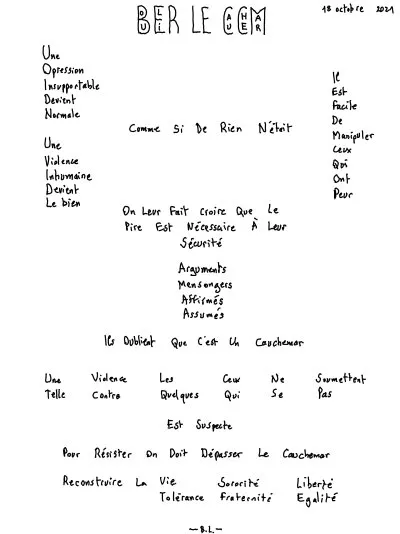 OUBLIER LE CAUCHEMAR
18 octobre 2021
Une
Opression
Insupportable
Devient
Normale
Une
Violence
Inhumaine
Devient
Le bien
Comme Si De Rien N'était
Il
Est
Facile
De
Manipuler
Ceux
Qui
Ont
Peur
On Leur Fait Croire Que Le
Pire Est Nécessaire À Leur
Sécurité
Arguments
Mensongers
Affirmés
Assumés
Ils Oublient Que C'est Un Cauchemar
Une Violence Les Ceux Ne Soumettent
Telle Contre Quelques Qui Se Pas
Est Suspecte
Pour Résister On Doit Dépasser Le Cauchemar
Reconstruire La Vie Sororité Liberté
Tolérance Fraternité Egalité
- B.L. -